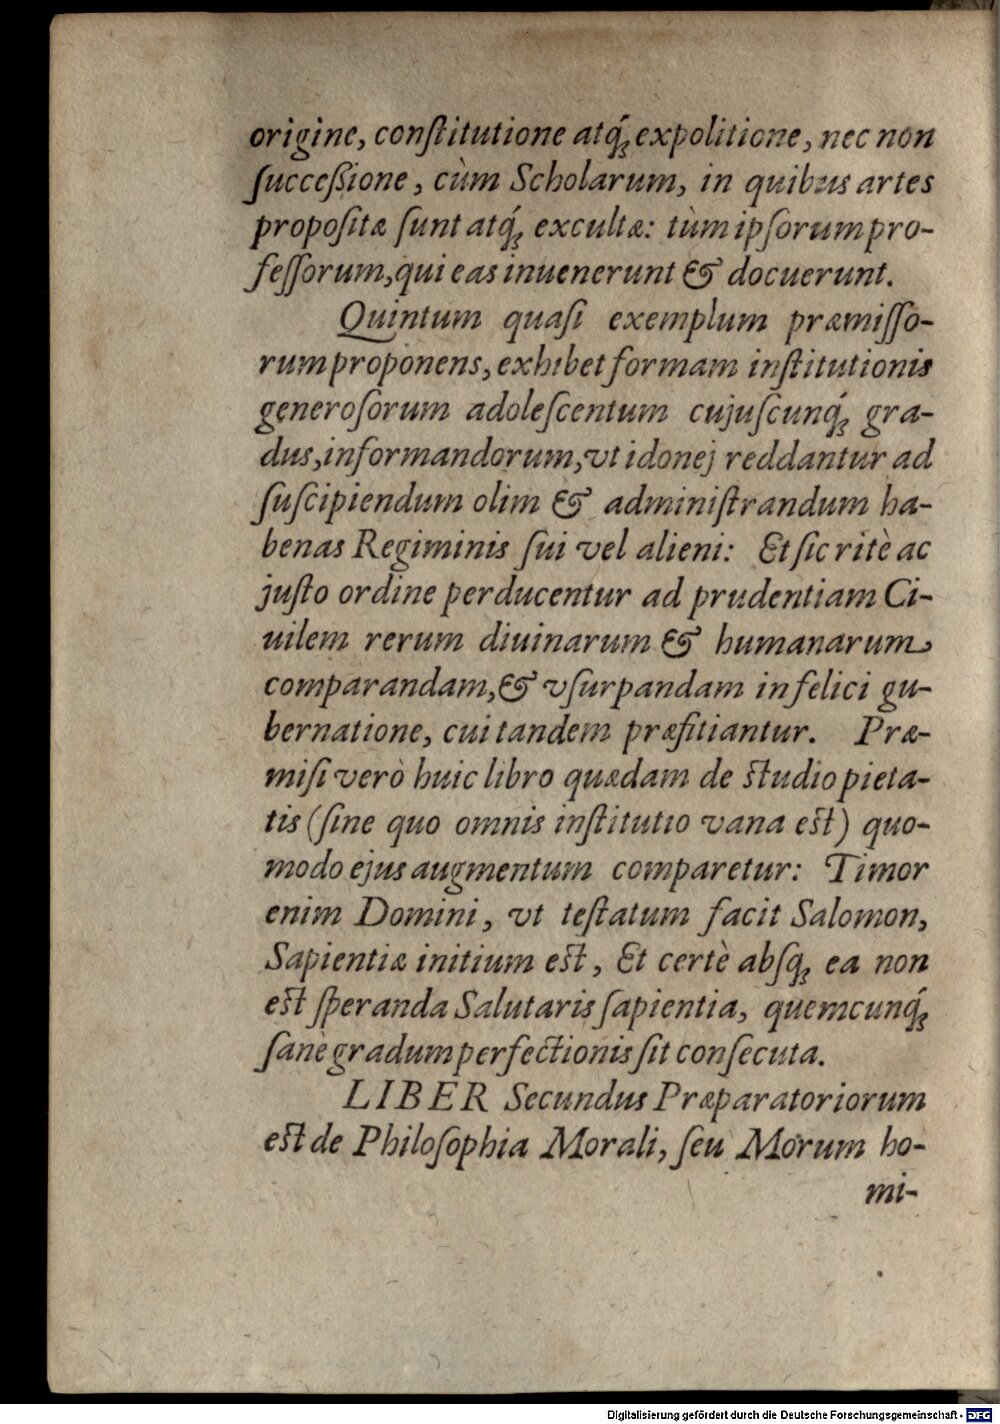 origine, conſtitutione atq́; expolitione, nec non
ſucceßione, cùm Scholarum, in quibus artes
propoſitæ ſunt atq́; excultæ: tùm ipſorum pro-
feſſorum, qui eas inuenerunt & docuerunt.
Quintum quaſi exemplum præmiſſo-
rum proponens, exhibet formam inſtitutionis
generoſorum adoleſcentum cujuſcunq́; gra-
dus, informandorum, vt idonej reddantur ad
ſuſcipiendum olim & adminiſtrandum ha-
benas Regiminis ſui vel alieni: Et ſic ritè ac
juſto ordine perducentur ad prudentiam Ci-
uilem rerum diuinarum & humanarum
comparandam, & vſurpandam in felici gu-
bernatione, cui tandem præfitiantur. Præ-
miſi verò huic libro quædam de ſtudio pieta-
tis (ſine quo omnis inſtitutio vana eſt) quo-
modo ejus augmentum comparetur: Timor
enim Domini, vt teſtatum facit Salomon,
Sapientiæ initium eſt, Et certè abſq; ea non
eſt ſperanda Salutaris ſapientia, quemcunq́;
ſanè gradum perfectionis ſit conſecuta.
LIBER Secundus Præparatoriorum
eſt de Philoſophia Morali, ſeu Morum ho-
mi-
Digitalisierung gefördert durch die Deutsche Forschungsgemeinschaft - DFG